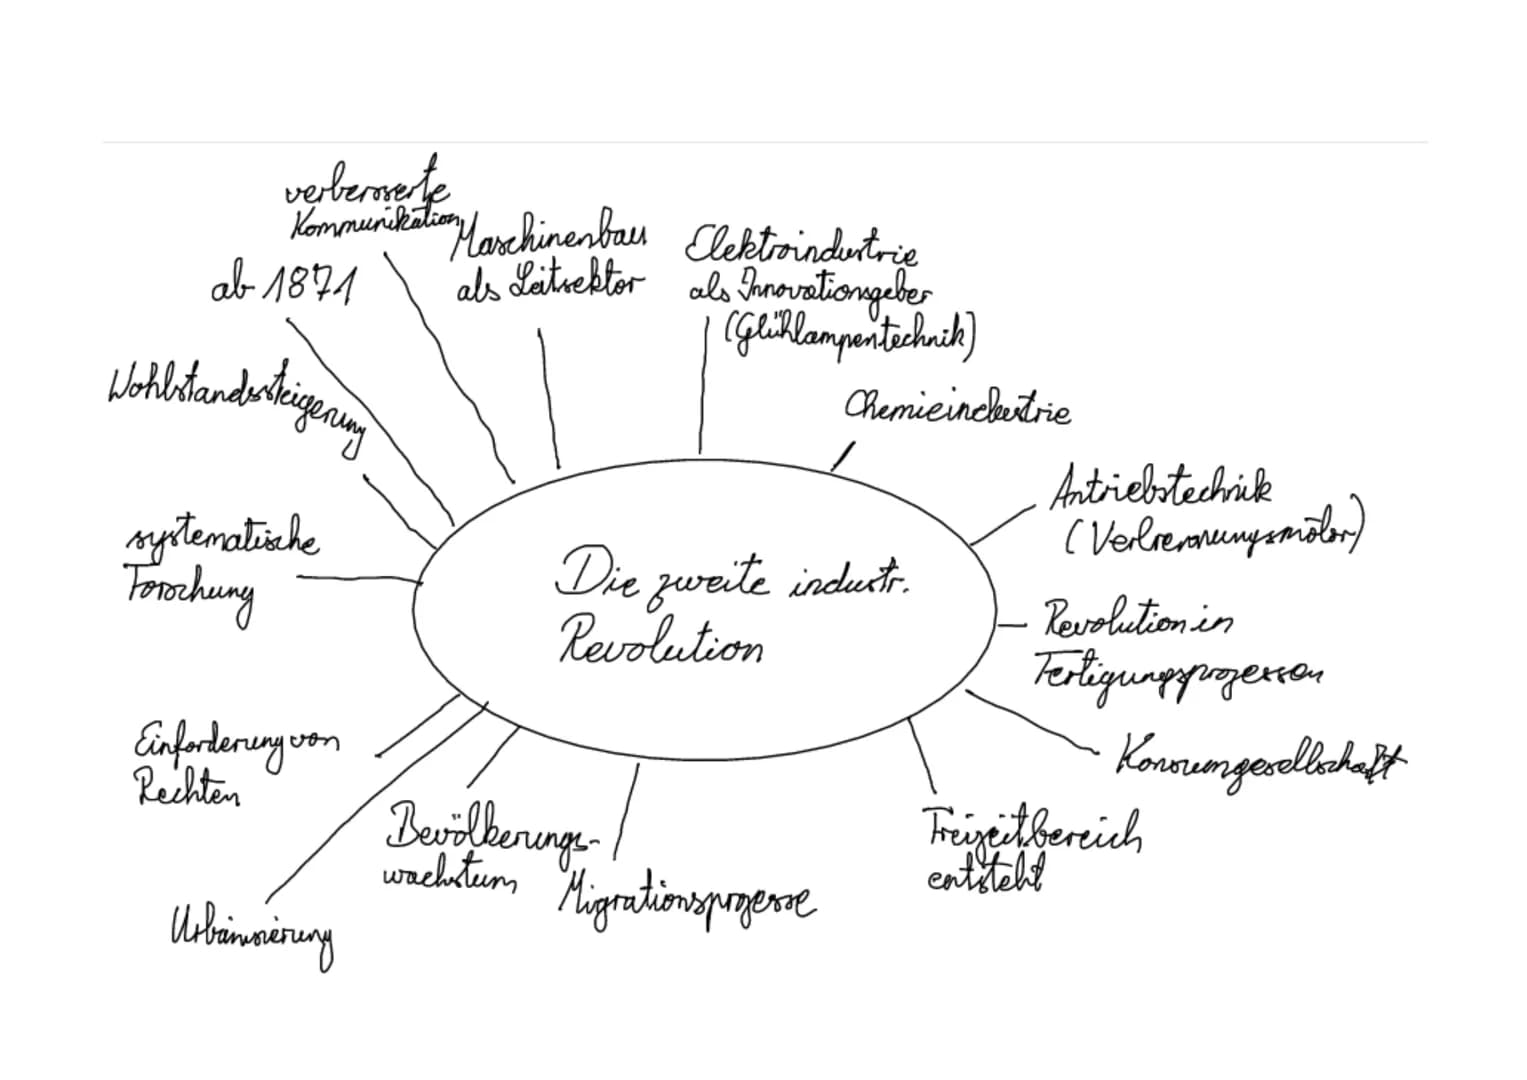 verbesserte
Kommunikation
Maschinenbau
als Leitsektor
Elektroindustrie
als Innovationsgeber
(Glühlampentechnik)
ab 1871
Wohlstandssteigerung
Chemieindustrie
Antriebstechnik
(Verbrennungsmotor)
systematische
Forschung
Die zweite industr.
Revolution
Revolution in
Fertigungsprozessen
Einforderung von
Rechten
Konsumgesellschaft
Bevölkerungs-
wachstum
Migrationsprozesse
Freizeitbereich
entsteht
Urbanisierung